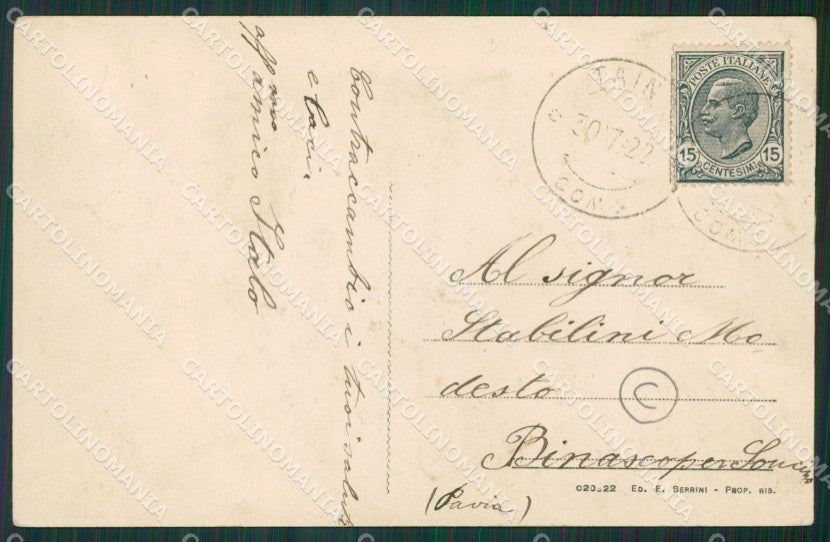 Contraccambio i tuoi saluti
e baci
aff.mo
amico Italo
POSTE ITALIANE
15 15
CENTESIMI
30 7 22
COMO
COMO
Al signor
Stabilini Mo
desto
C
Binasco per
(Pavia)
620-22 ED. E. BERRINI - PROP. RIS.
CARTOLINOMANIA